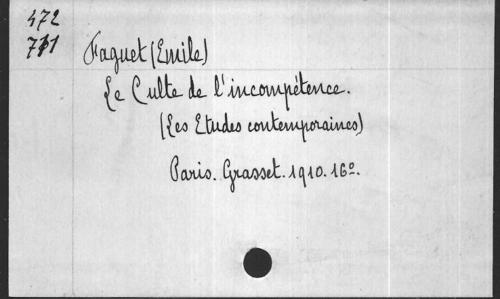 472
711
Faguet (Emile)
Le Culte de l'incompétence.
(Les Etudes contemporaines)
Paris. Grasset. 1910. 16º.